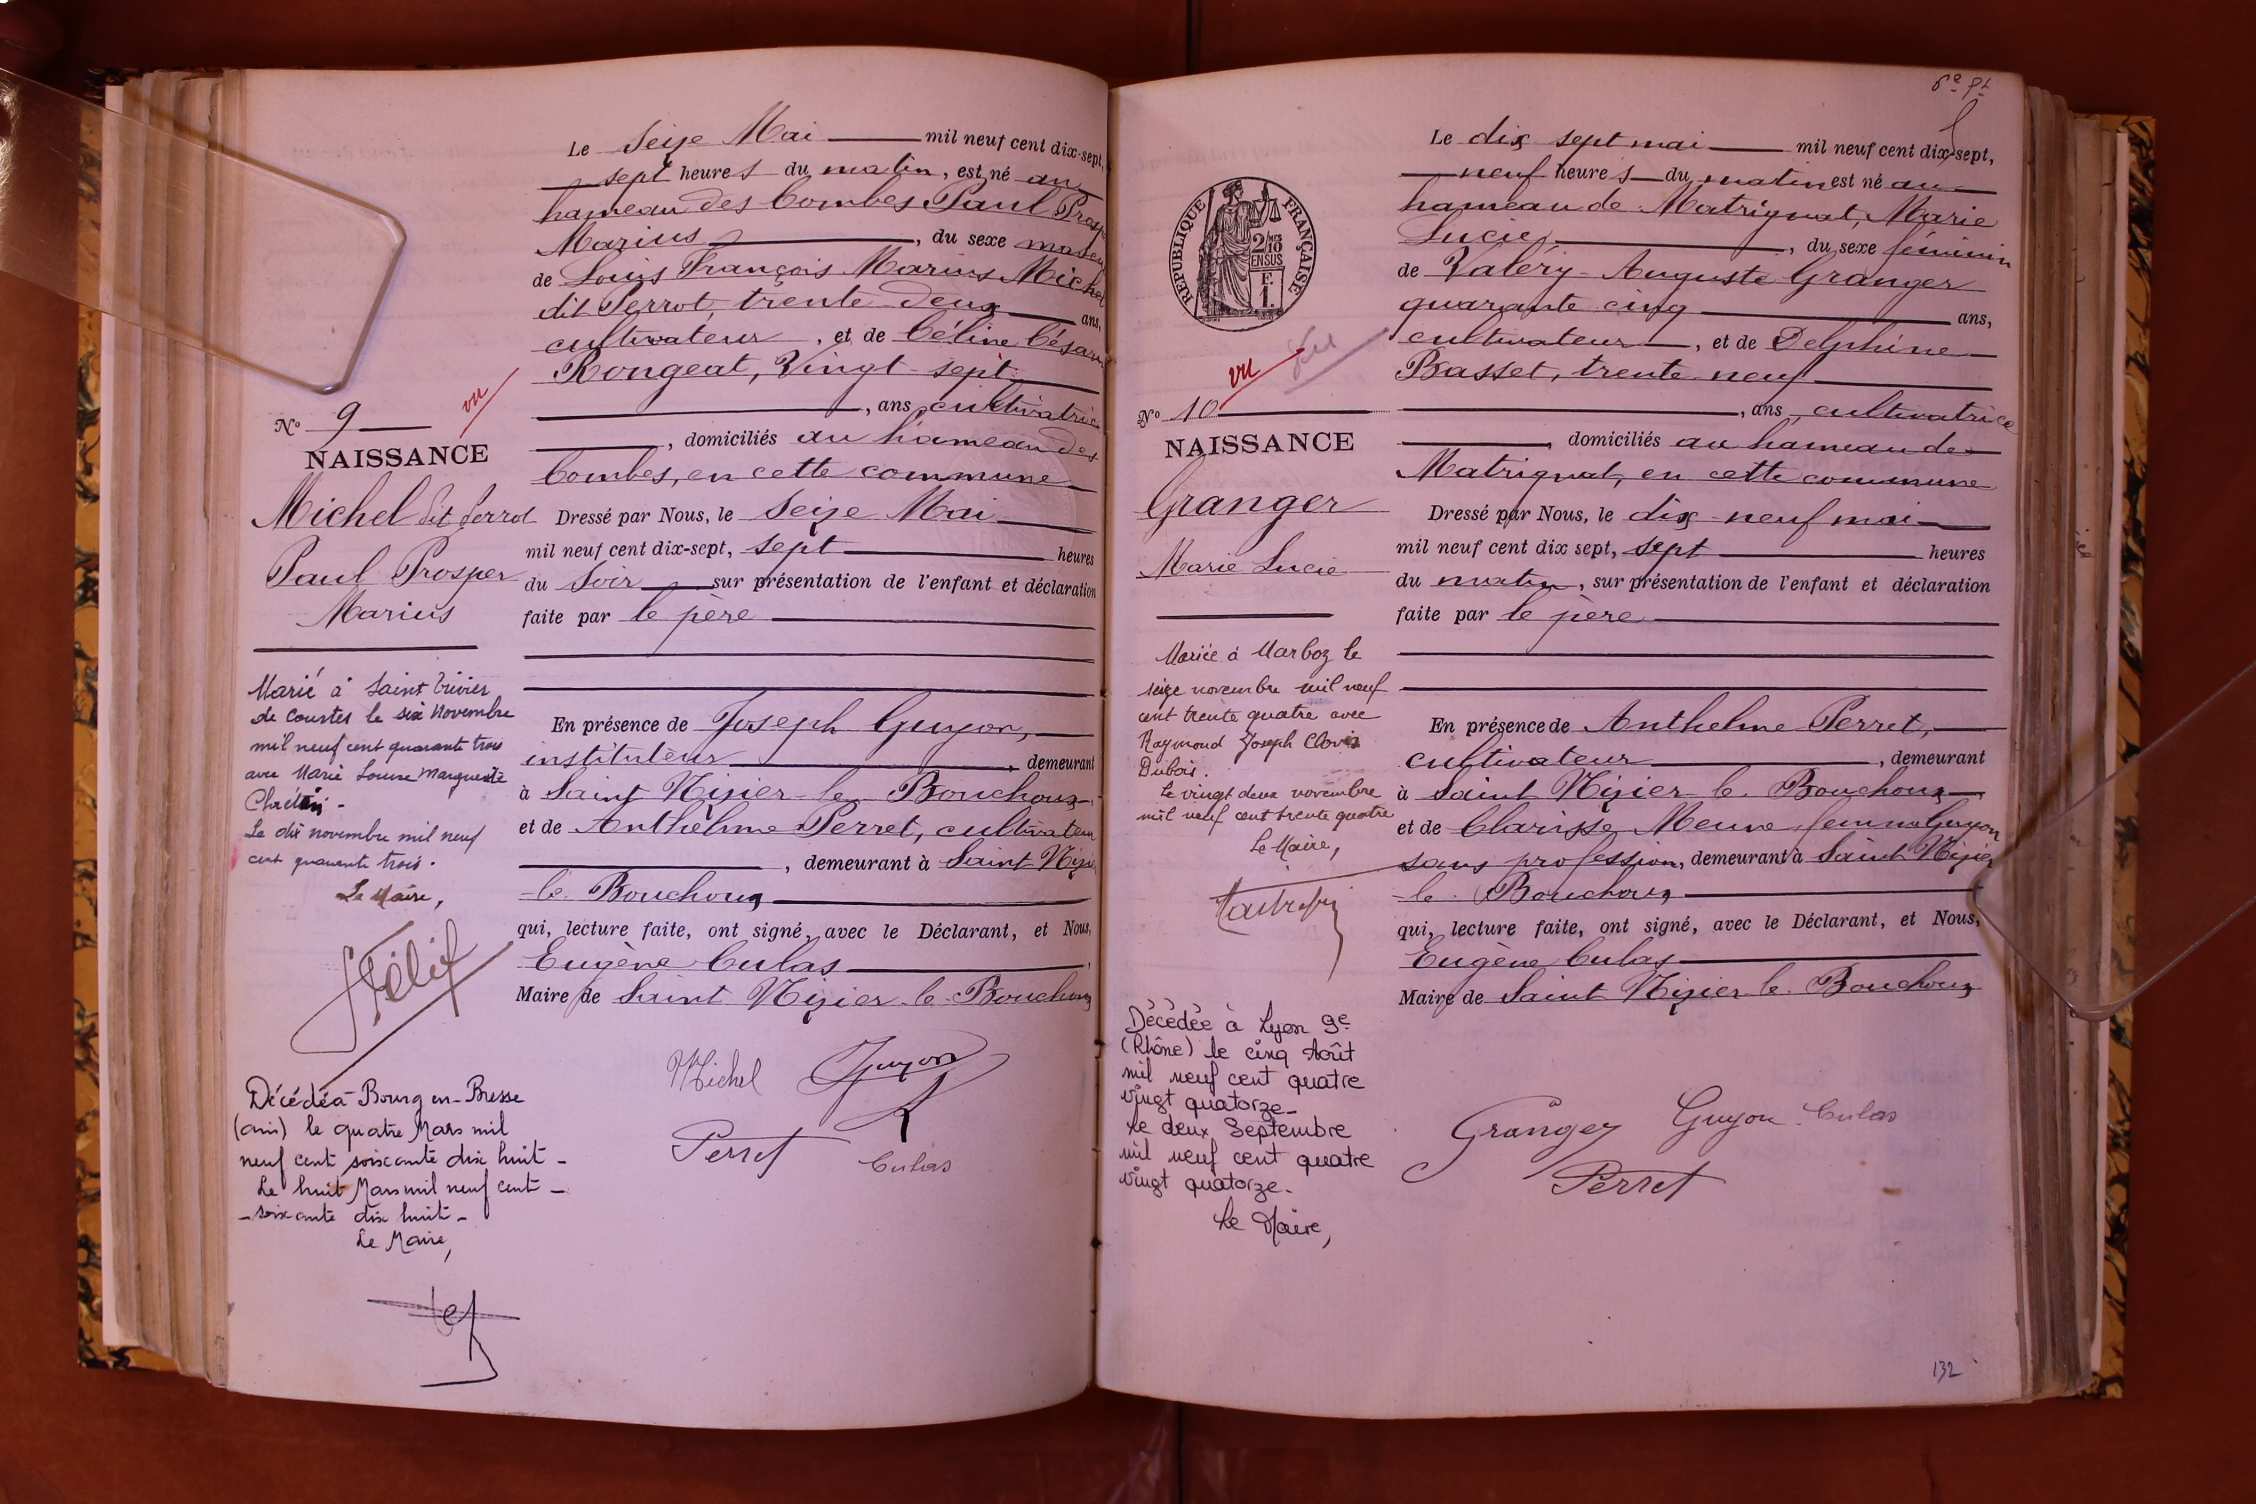 Le Seize Mai mil neuf cent dix-sept,
sept heures du matin, est né au
hameau des Combes Paul Prosp
Marius, du sexe mascu
de Louis François Marius Michel
dit Perrot, trente deux ans,
cultivateur, et de Céline Césari
Rongeat, Vingt-sept
, ans cultivatrice
, domiciliés au hameau des
Combes, en cette commune
Dressé par Nous, le Seize Mai
mil neuf cent dix-sept, sept heures
du Soir sur présentation de l'enfant et déclaration
faite par le père
En présence de Joseph Guyon,
instituteur, demeurant
à Saint Nizier-le-Bouchoux
et de Anthelme Perret, cultivateur
, demeurant à Saint Nizie
-le Bouchoux
qui, lecture faite, ont signé, avec le Déclarant, et Nous,
Eugène Culas
Maire de Saint Nizier-le-Bouchoux
Michel Guyon
Perret Culas
No 9
vu
NAISSANCE
Michel dit Perrot
Paul Prosper
Marius
Marié à Saint Trivier
de Courtes le six Novembre
mil neuf cent quarante trois
avec Marie Louise Marguerite
Chrétin -
Le dix novembre mil neuf
cent quarante trois.
Le Maire,
Décédé à Bourg en-Bresse
(Ain) le quatre Mars mil
neuf cent soixante dix huit -
Le huit Mars mil neuf cent -
- soixante dix huit -
Le Maire,
Le dix sept mai mil neuf cent dix-sept,
neuf heures du matin est né au
hameau de Matrignat, Marie
Lucie, du sexe féminin
de Valéry-Auguste Granger
quarante cinq ans,
cultivateur, et de Delphine
Basset, trente neuf
, ans, cultivatrice
, domiciliés au hameau de
Matrignat, en cette commune
Dressé par Nous, le dix-neuf mai
mil neuf cent dix sept, sept heures
du matin, sur présentation de l'enfant et déclaration
faite par le père
En présence de Anthelme Perret,
cultivateur, demeurant
à Saint Nizier-le-Bouchoux
et de Clarisse Meune femme Guyon
sans profession, demeurant à Saint Nizier
-le-Bouchoux
qui, lecture faite, ont signé, avec le Déclarant, et Nous,
Eugène Culas
Maire de Saint Nizier-le-Bouchoux
Granger Guyon Culas
Perret
RÉPUBLIQUE FRANÇAISE
2/10
EN SUS
F.
1.
vu
No 10
NAISSANCE
Granger
Marie Lucie
Mariée à Marboz le
seize novembre mil neuf
cent trente quatre avec
Raymond Joseph Clovis
Dubois.
Le vingt deux novembre
mil neuf cent trente quatre
Le Maire,
Décédée à Lyon 9e
(Rhône) le cinq Août
mil neuf cent quatre
vingt quatorze -
Le deux Septembre
mil neuf cent quatre
vingt quatorze -
Le Maire,
132